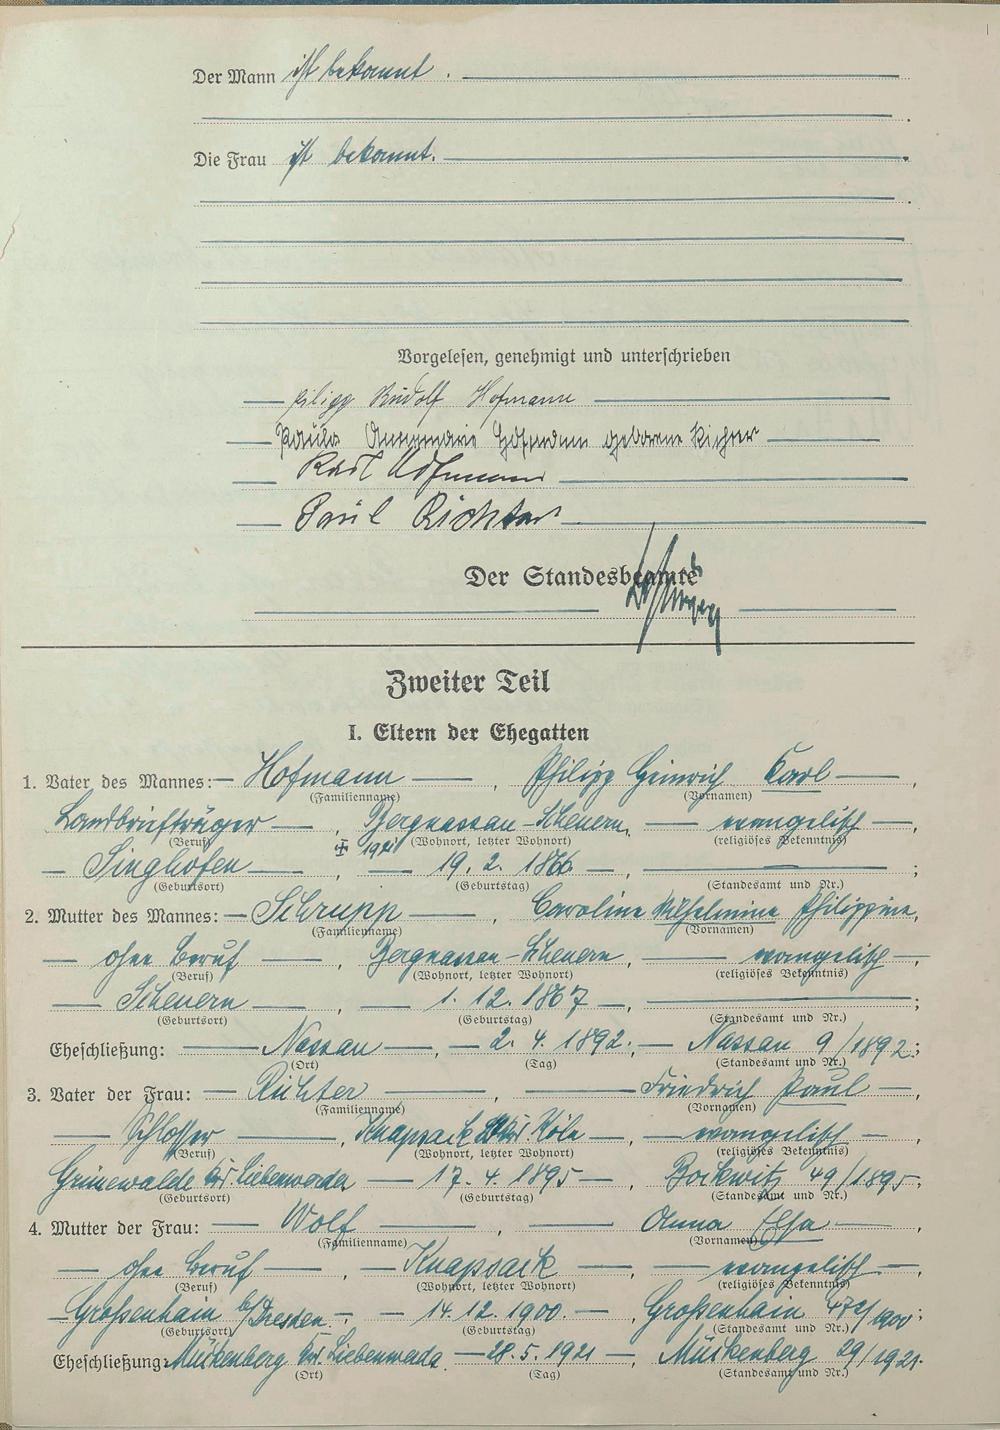 Der Mann ist bekannt.
Die Frau ist bekannt.
Vorgelesen, genehmigt und unterschrieben
Filipp Rudolf Hofmann
Paula Annemarie Hofmann geborene Richter
Karl Hofmann
Paul Richter
Der Standesbeamte
Zweiter Teil
I. Eltern der Ehegatten
1. Vater des Mannes: Hofmann, Philipp Heinrich Karl,
(Familienname) (Vornamen)
Landbriefträger, Bergnassau-Scheuern, evangelisch,
(Beruf) (Wohnort, letzter Wohnort) (religiöses Bekenntnis)
Singhofen, 19. 2. 1866, ;
(Geburtsort) (Geburtstag) (Standesamt und Nr.)
2. Mutter des Mannes: Schrupp, Caroline Wilhelmine Philippine,
(Familienname) (Vornamen)
ohne Beruf, Bergnassau-Scheuern, evangelisch,
(Beruf) (Wohnort, letzter Wohnort) (religiöses Bekenntnis)
Scheuern, 1. 12. 1867, ;
(Geburtsort) (Geburtstag) (Standesamt und Nr.)
Eheschließung: Nassau, 2. 4. 1892, Nassau 9/1892;
(Ort) (Tag) (Standesamt und Nr.)
3. Vater der Frau: Richter, Friedrich Paul,
(Familienname) (Vornamen)
Schlosser, Knapsack Köln, evangelisch,
(Beruf) (Wohnort, letzter Wohnort) (religiöses Bekenntnis)
Grünewalde Krs. Liebenwerda, 17. 4. 1895, Bockwitz 49/1895;
(Geburtsort) (Geburtstag) (Standesamt und Nr.)
4. Mutter der Frau: Wolf, Anna Elsa,
(Familienname) (Vornamen)
ohne Beruf, Knapsack, evangelisch,
(Beruf) (Wohnort, letzter Wohnort) (religiöses Bekenntnis)
Großenhain b/Dresden, 14. 12. 1900, Großenhain
(Geburtsort) (Geburtstag) (Standesamt und Nr.)
Eheschließung: Mückenberg Krs. Liebenwerda, 28. 5. 1921, Mückenberg 29/1921.
(Ort) (Tag) (Standesamt und Nr.)